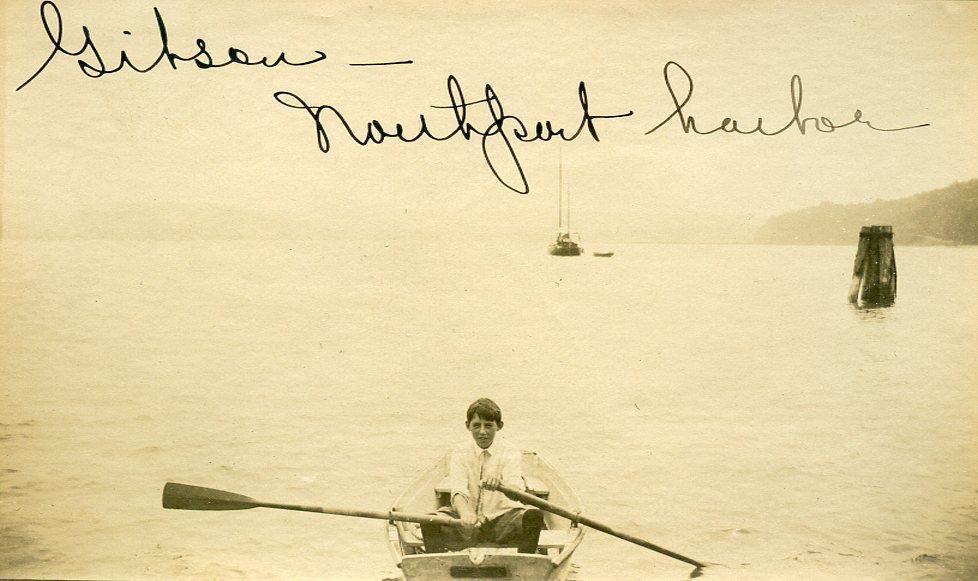 Gibson —
Northport harbor